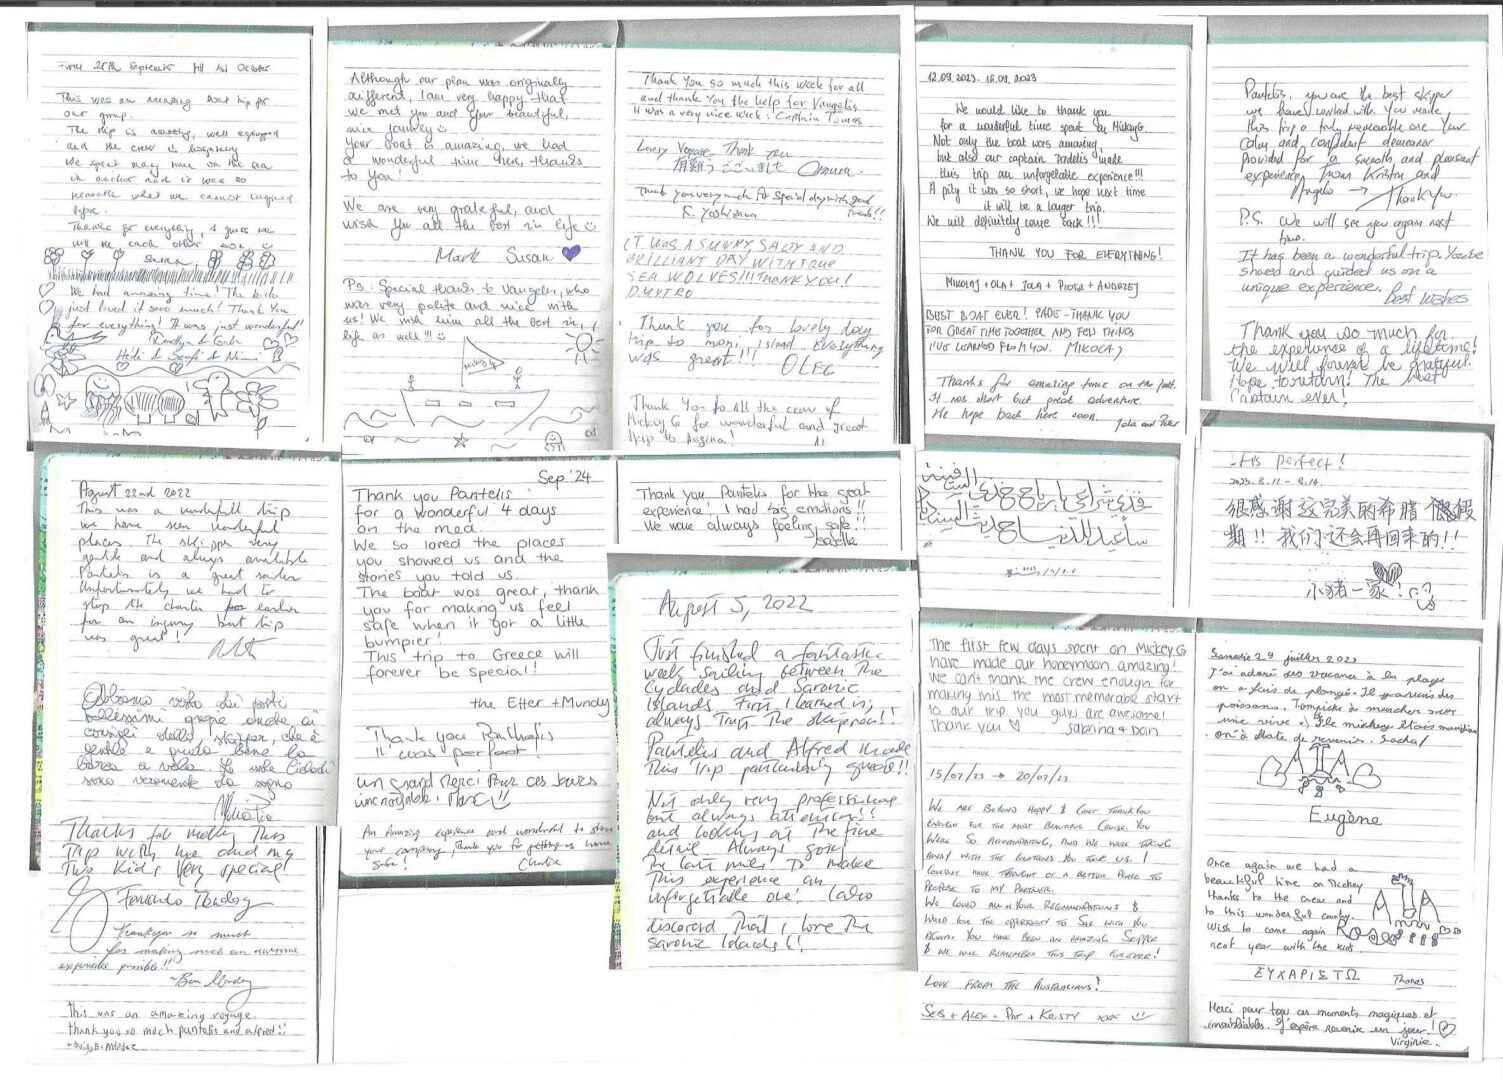 From 28th September till 1st October
This was an amazing boat trip for
our group.
The ship is amazing, well equipped
and the crew is
We spent many time on the sea
in anchor and it was so
what we cannot
Thanks for everything, I guess we
will see each other soon
Sarah
We had amazing time! The kids
just loved it sooo much! Thank you
for everything! It was just wonderful!
Although our plan was originally
different, I am very happy that
we met you and your beautiful,
nice family
Your boat is amazing, we had
a wonderful time here, thanks
to you!
We are very grateful, and
wish you all the best in life
Mark Susan
P.S.: Special thanks to Vangelis, who
was very polite and nice with
us! We wish him all the best in
life as well!!!
Thank you so much this week for all
and thank you the help for Vangelis
It was a very nice week! Captain Tomas
Lovely Voyage Thank you
有難うございました Omura
Thank you very much for special day with good
friends!!
K. Yoshizawa
IT WAS A SUNNY, SALTY AND
BRILLIANT DAY WITH TRUE
SEA WOLVES!!! THANK YOU!
DMYTRO
Thank you for lovely day
trip to moni island. Everything
was great!!! OLEG
Thank you to all the crew of
Mickey G for wonderful and great
trip to Aegina!
12.09.2023 - 16.09.2023
We would like to thank you
for a wonderful time spent on MickeyG.
Not only the boat was amazing,
but also our captain Padelis made
this trip an unforgetable experience!!!
A pity it was so short, we hope next time
it will be a longer trip.
We will definitely come back!!!
THANK YOU FOR EVERYTHING!
MIKOŁAJ + OLA + JOLA + PIOTR + ANDRZEJ
BEST BOAT EVER! PADE - THANK YOU
FOR GREAT TIME TOGETHER AND FEW THINGS
I'VE LEARNED FROM YOU. MIKOŁAJ
Thanks for amazing time on the
It was short but great adventure.
We hope back here soon. Jola and Peter
Pantelis, you are the best skipper
we have worked with. You made
this trip a truly memorable one. Your
calm and confident demeanor
provided for a smooth and pleasant
experience, Kristin and
Angelo → Thank You.
P.S. We will see you again next
time.
It has been a wonderful trip. You've
showed and guided us on a
unique experience. Best wishes
Thank you so much for
the experience of a lifetime!
We will forever be grateful.
Hope to return! The best
Captain ever!
August 22nd 2022
This was a wonderfull trip
we have seen wonderful
places. The skipper very
gentle and always available
Pantelis is a great sailor
Unfortunately we had to
stop the charter earlier
for an injury but trip
was great!
Abbiamo visto dei posti
bellissimi grazie anche ai
consigli dello skipper che è
gentile e guida bene la
barca a vela. Le isole Cicladi
sono veramente da sogno
Thanks for making this
trip with me and my
two kids very special!
Fernando
Thank you so much
for making such an awesome
experience possible!!
~Ben
This was an amazing voyage.
thank you so much pantelis and alfred!!
Sep '24
Thank you Pantelis
for a wonderful 4 days
on the med.
We so loved the places
you showed us and the
stories you told us.
The boat was great, thank
you for making us feel
safe when it got a little
bumpier!
This trip to Greece will
forever be special!
the Etter + Mundy
Thank you
It was perfect!
Un grand merci pour ces jours
incroyables. Marc
An amazing experience and wonderful to share
your company, thank you for getting us home
safe! Charlie
Thank you Pantelis for the great
experience, I had big emotions!!
We have always feeling safe!!
Isabelle
August 5, 2022
Just finished a fantastic
week sailing between the
Cyclades and Saronic
Islands. First learned is,
always trust the skipper!!
Pantelis and Alfred made
this trip particularly good!!
Not only very professional
but always attentive!!
and looking at the fine
detail. Always going
the last miles to make
this experience an
unforgettable one! I also
discovered that I love the
Saronic Islands!!
It's perfect!
2023.8.11 - 8.14.
很感谢这完美的希腊假
期!! 我们还会再回来的!!
小猪一家!
The first few days spent on Mickey G
have made our honeymoon amazing!
We can't thank the crew enough for
making this the most memorable start
to our trip, you guys are awesome!
Thank you ♡ Sabrina + Dan
15/07/23 → 20/07/23
We are beyond happy & can't thank you
enough for the most beautiful cruise. You
were so accommodating, and we were taking
away with the locations you took us. I
couldn't have thought of a better place to
propose to my partner.
We loved all of your recommendations &
would love the opportunity to sail with you
again. You have been an amazing skipper
& we will remember this trip forever!
Love from the Australians!
Seb + Alex + Pat + Kristy xxx
Samedie 29 juillet 2023
J'ai adoré ses vacance à la plage
on a fais de plongé. Je
poissons.
une vive.
on a hâte de revenir. Sacha
Eugène
Once again we had a
beautiful time on Mickey
thanks to the crew and
to this wonderful country.
Wish to come again
next year with the kids
ΕΥΧΑΡΙΣΤΩ
Thomas
Merci pour tous ces moments magiques et
inoubliables. J'espère revenir un jour! ♡
Virginie.